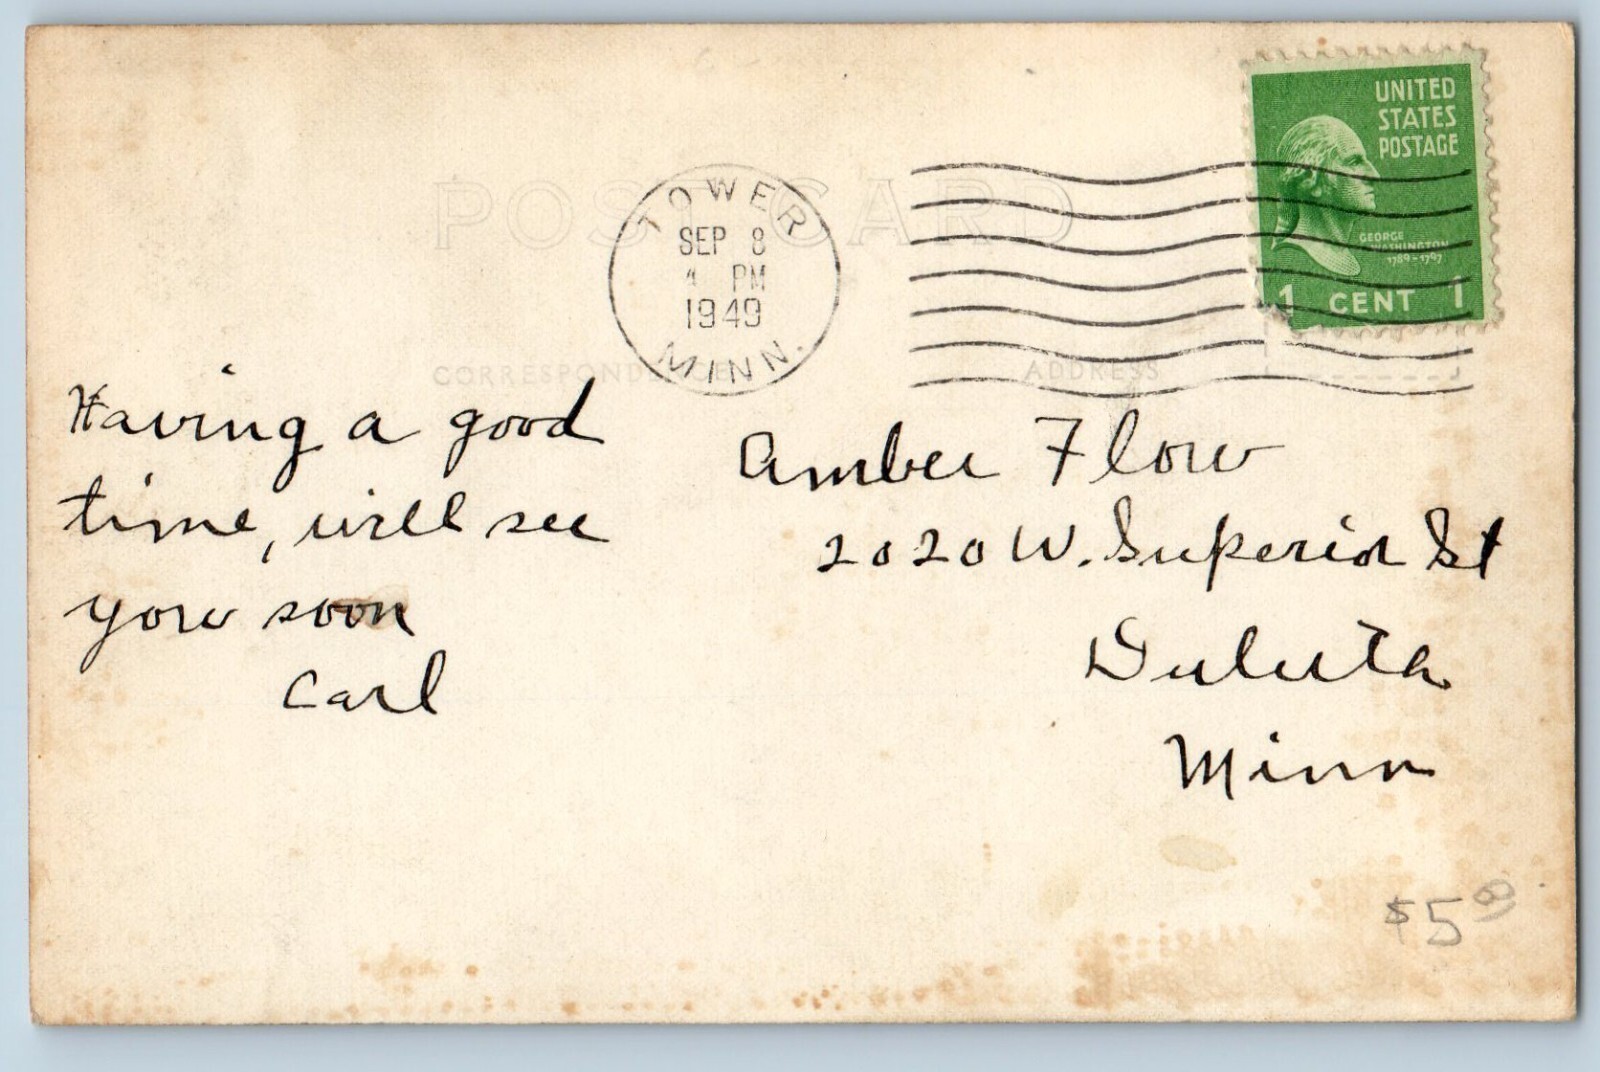 UNITED
STATES
POSTAGE
GEORGE
WASHINGTON
1789-1797
1 CENT 1
POST CARD
TOWER
SEP 8
PM
1949
MINN.
CORRESPONDENCE
ADDRESS
Having a good
time, will see
you soon
Carl
Amber Flow
2020 W. Superior St
Duluth
Minn
$5.00